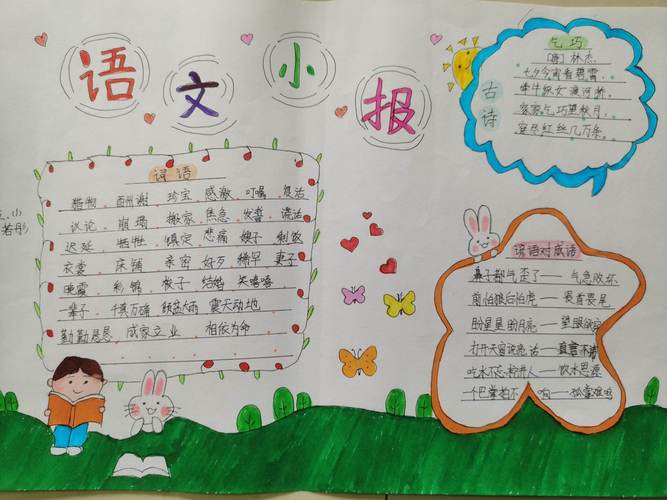 语文小报
乞巧
[唐] 林杰
七夕今宵看碧霄，
牵牛织女渡河桥。
家家乞巧望秋月，
穿尽红丝几万条。
古诗
词语
猎物 酬谢 珍宝 感激 叮嘱 复活
议论 崩塌 搬家 焦急 发誓 谎话
迟延 牺牲 镇定 悲痛 嫂子 剩饭
衣裳 床铺 亲密 好歹 稍早 妻子
晚霞 彩锦 梭子 结婚 笑嘻嘻
一辈子 千真万确 倾盆大雨 震天动地
勤勤恳恳 成家立业 相依为命
谚语对成语
鼻子都气歪了——气急败坏
前怕狼后怕虎——畏首畏尾
盼星星盼月亮——望眼欲穿
打开天窗说亮话——直言不讳
吃水不忘挖井人——饮水思源
一个巴掌拍不响——孤掌难鸣